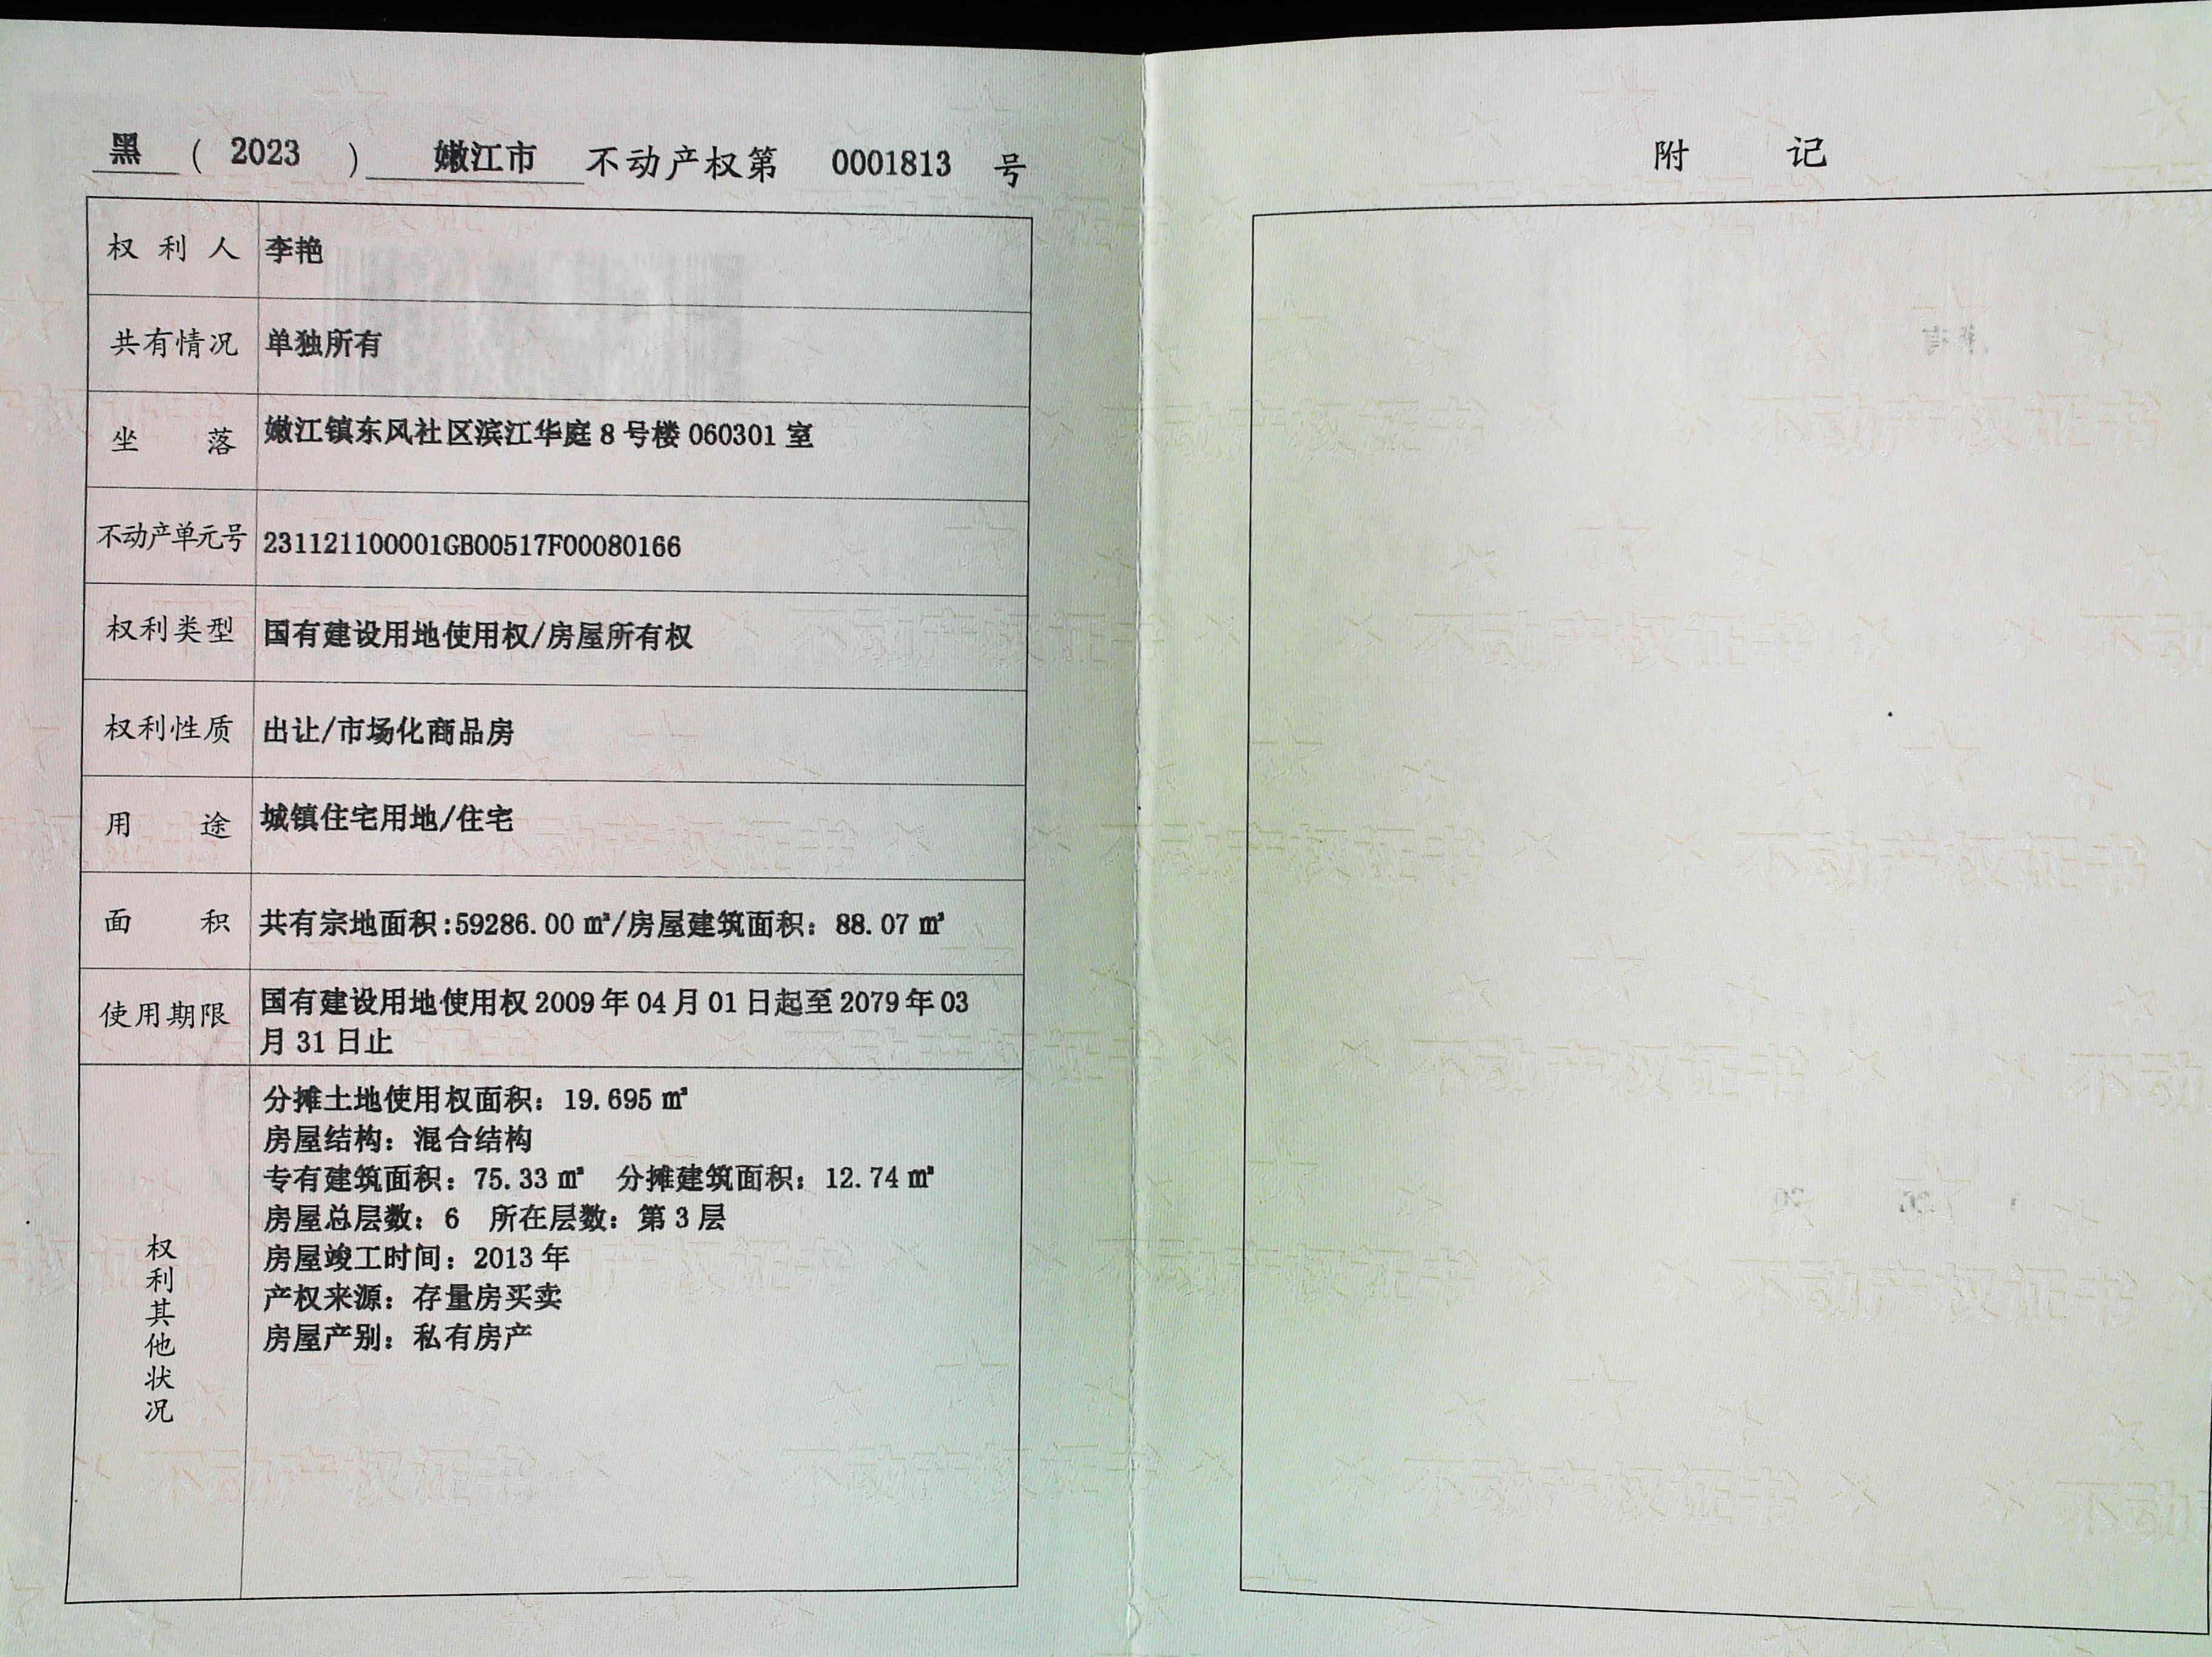 黑 ( 2023 ) 嫩江市 不动产权第 0001813 号
权利人 李艳
共有情况 单独所有
坐落 嫩江镇东风社区滨江华庭 8 号楼 060301 室
不动产单元号 231121100001GB00517F00080166
权利类型 国有建设用地使用权/房屋所有权
权利性质 出让/市场化商品房
用途 城镇住宅用地/住宅
面积 共有宗地面积:59286.00 ㎡/房屋建筑面积：88.07 ㎡
使用期限 国有建设用地使用权 2009 年 04 月 01 日起至 2079 年 03
月 31 日止
权利其他状况
分摊土地使用权面积：19.695 ㎡
房屋结构：混合结构
专有建筑面积：75.33 ㎡ 分摊建筑面积：12.74 ㎡
房屋总层数：6 所在层数：第 3 层
房屋竣工时间：2013 年
产权来源：存量房买卖
房屋产别：私有房产
附记